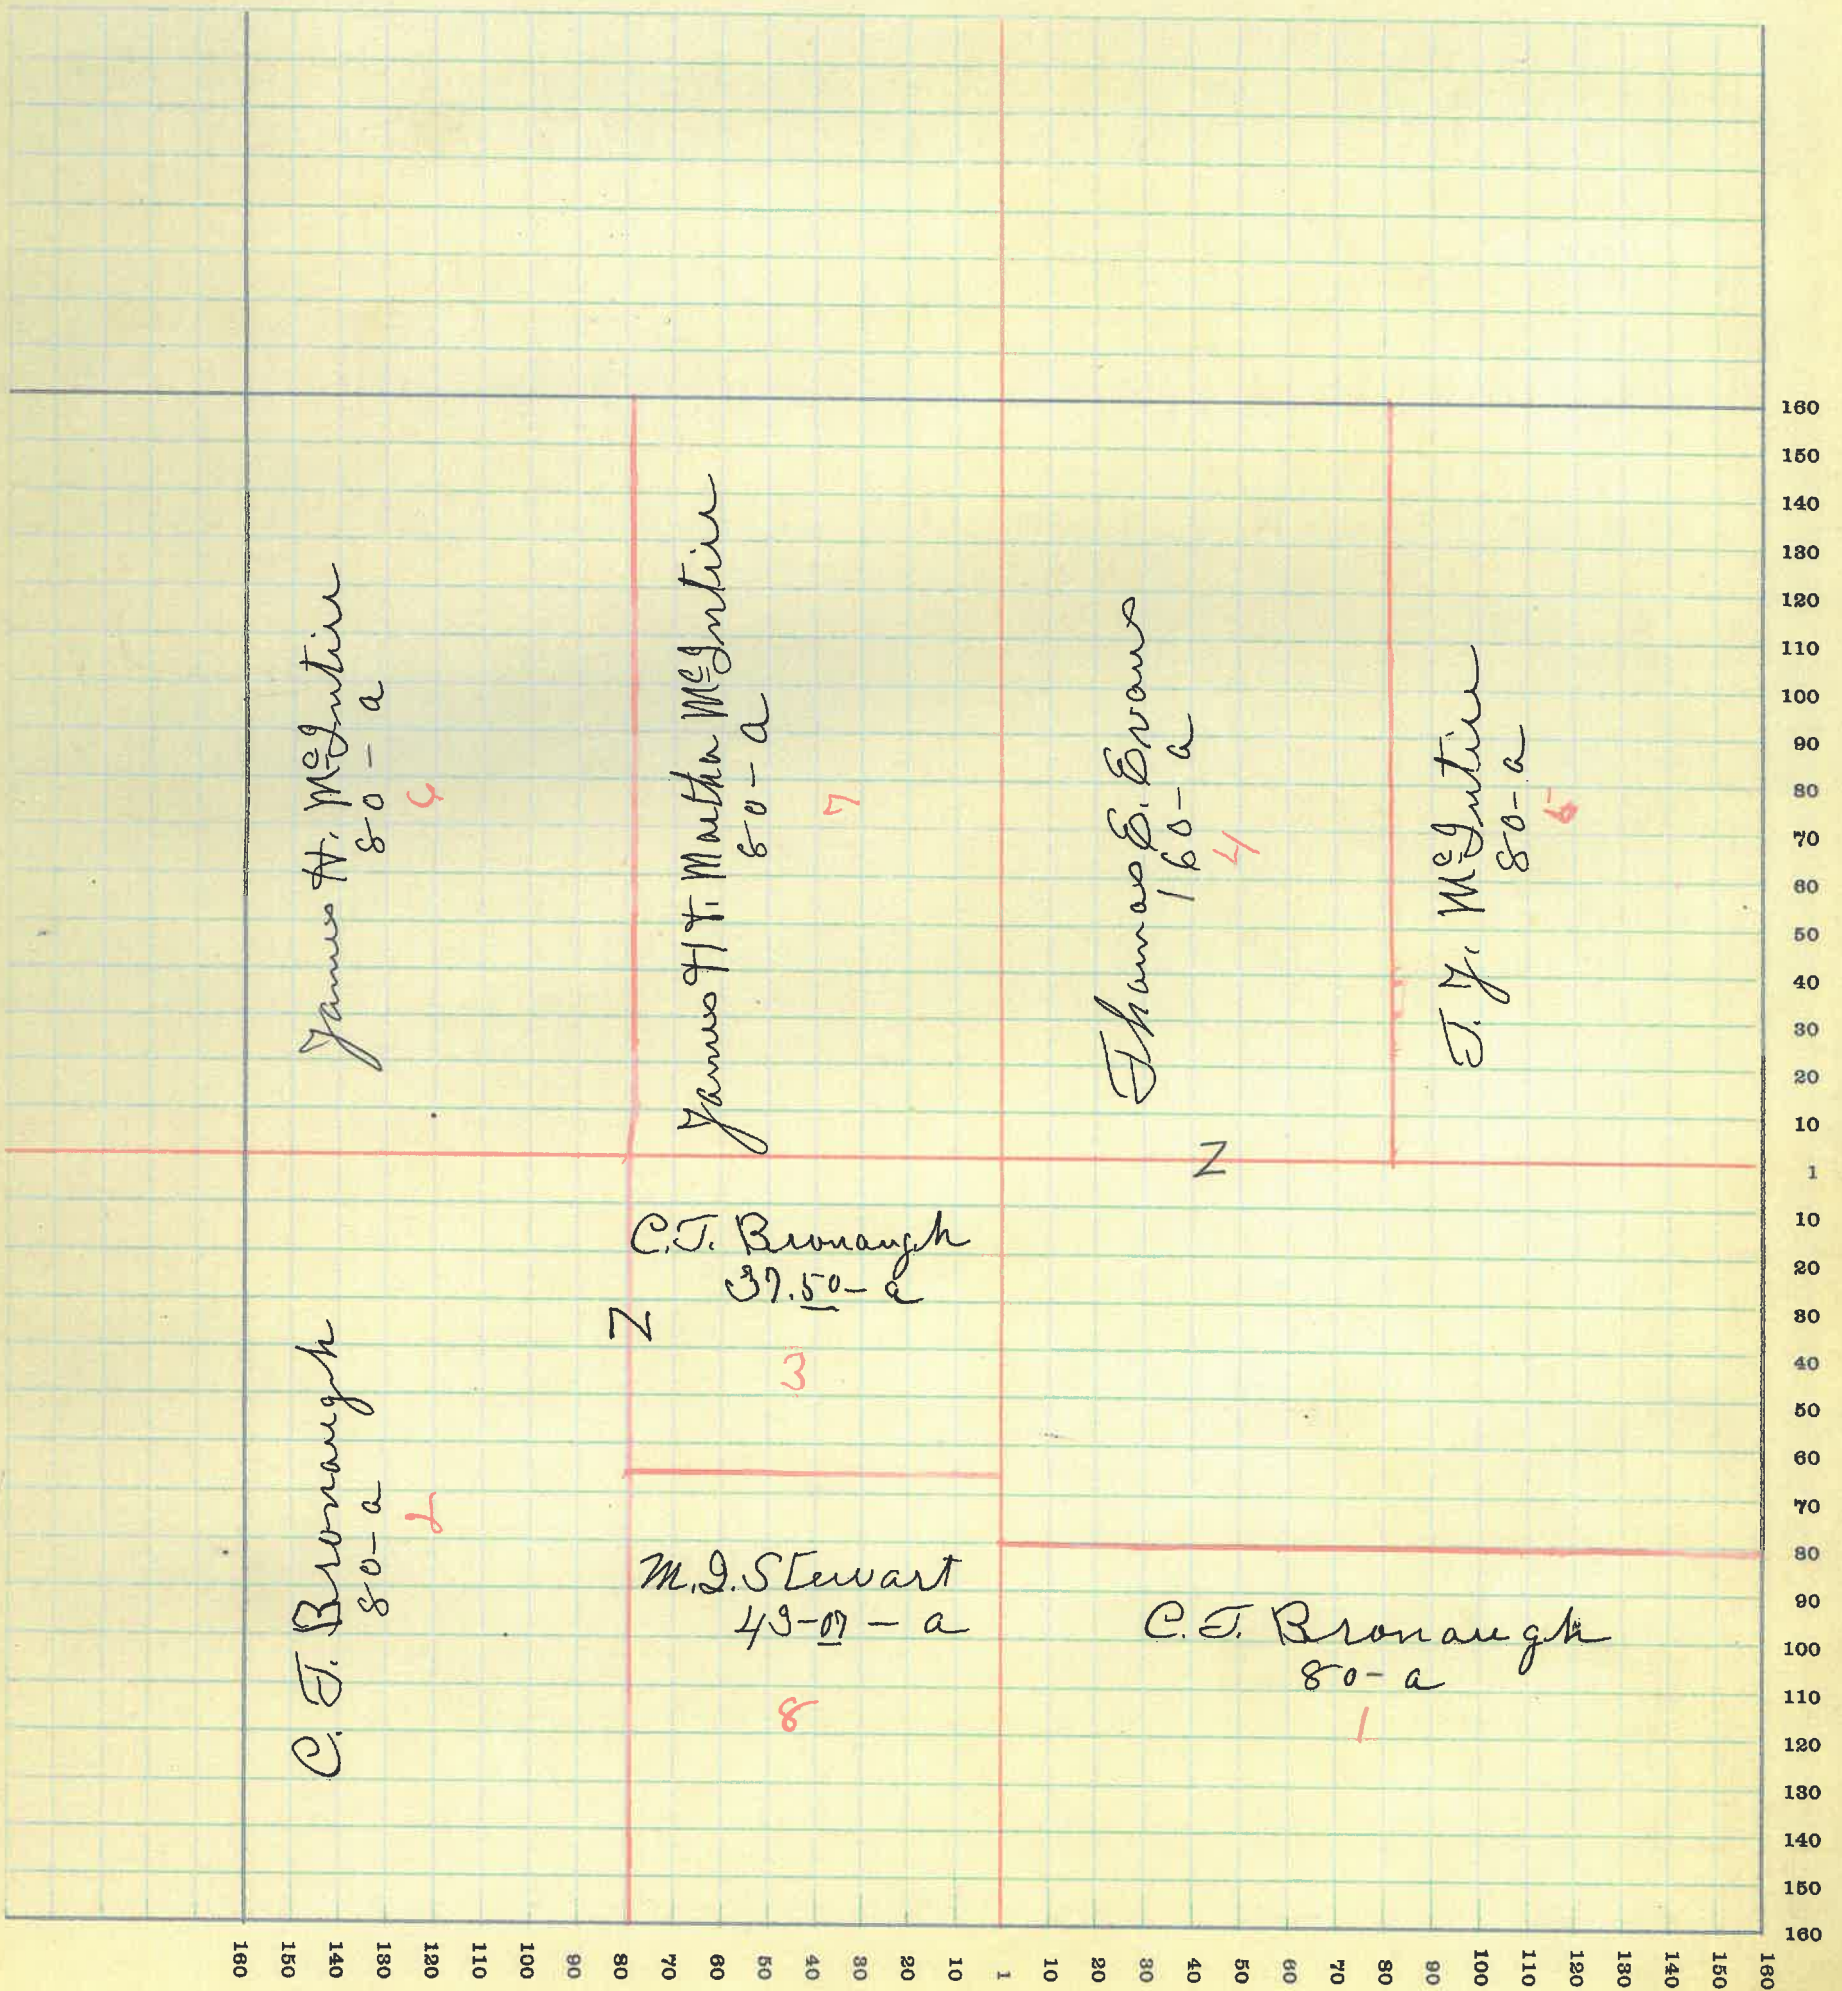 James H. McIntire
80 - a
6
James H & Martha McIntire
80 - a
7
Thomas E. Evans
160 - a
4
T. Y. McIntire
80 - a
5
Z
C.T. Bronaugh
37.50 - a
3
Z
C. T. Bronaugh
80 - a
2
M.I. Stewart
43-07 - a
8
C.T. Bronaugh
80 - a
1
160
150
140
130
120
110
100
90
80
70
60
50
40
30
20
10
1
10
20
30
40
50
60
70
80
90
100
110
120
130
140
150
160
160
150
140
130
120
110
100
90
80
70
60
50
40
30
20
10
1
10
20
30
40
50
60
70
80
90
100
110
120
130
140
150
160